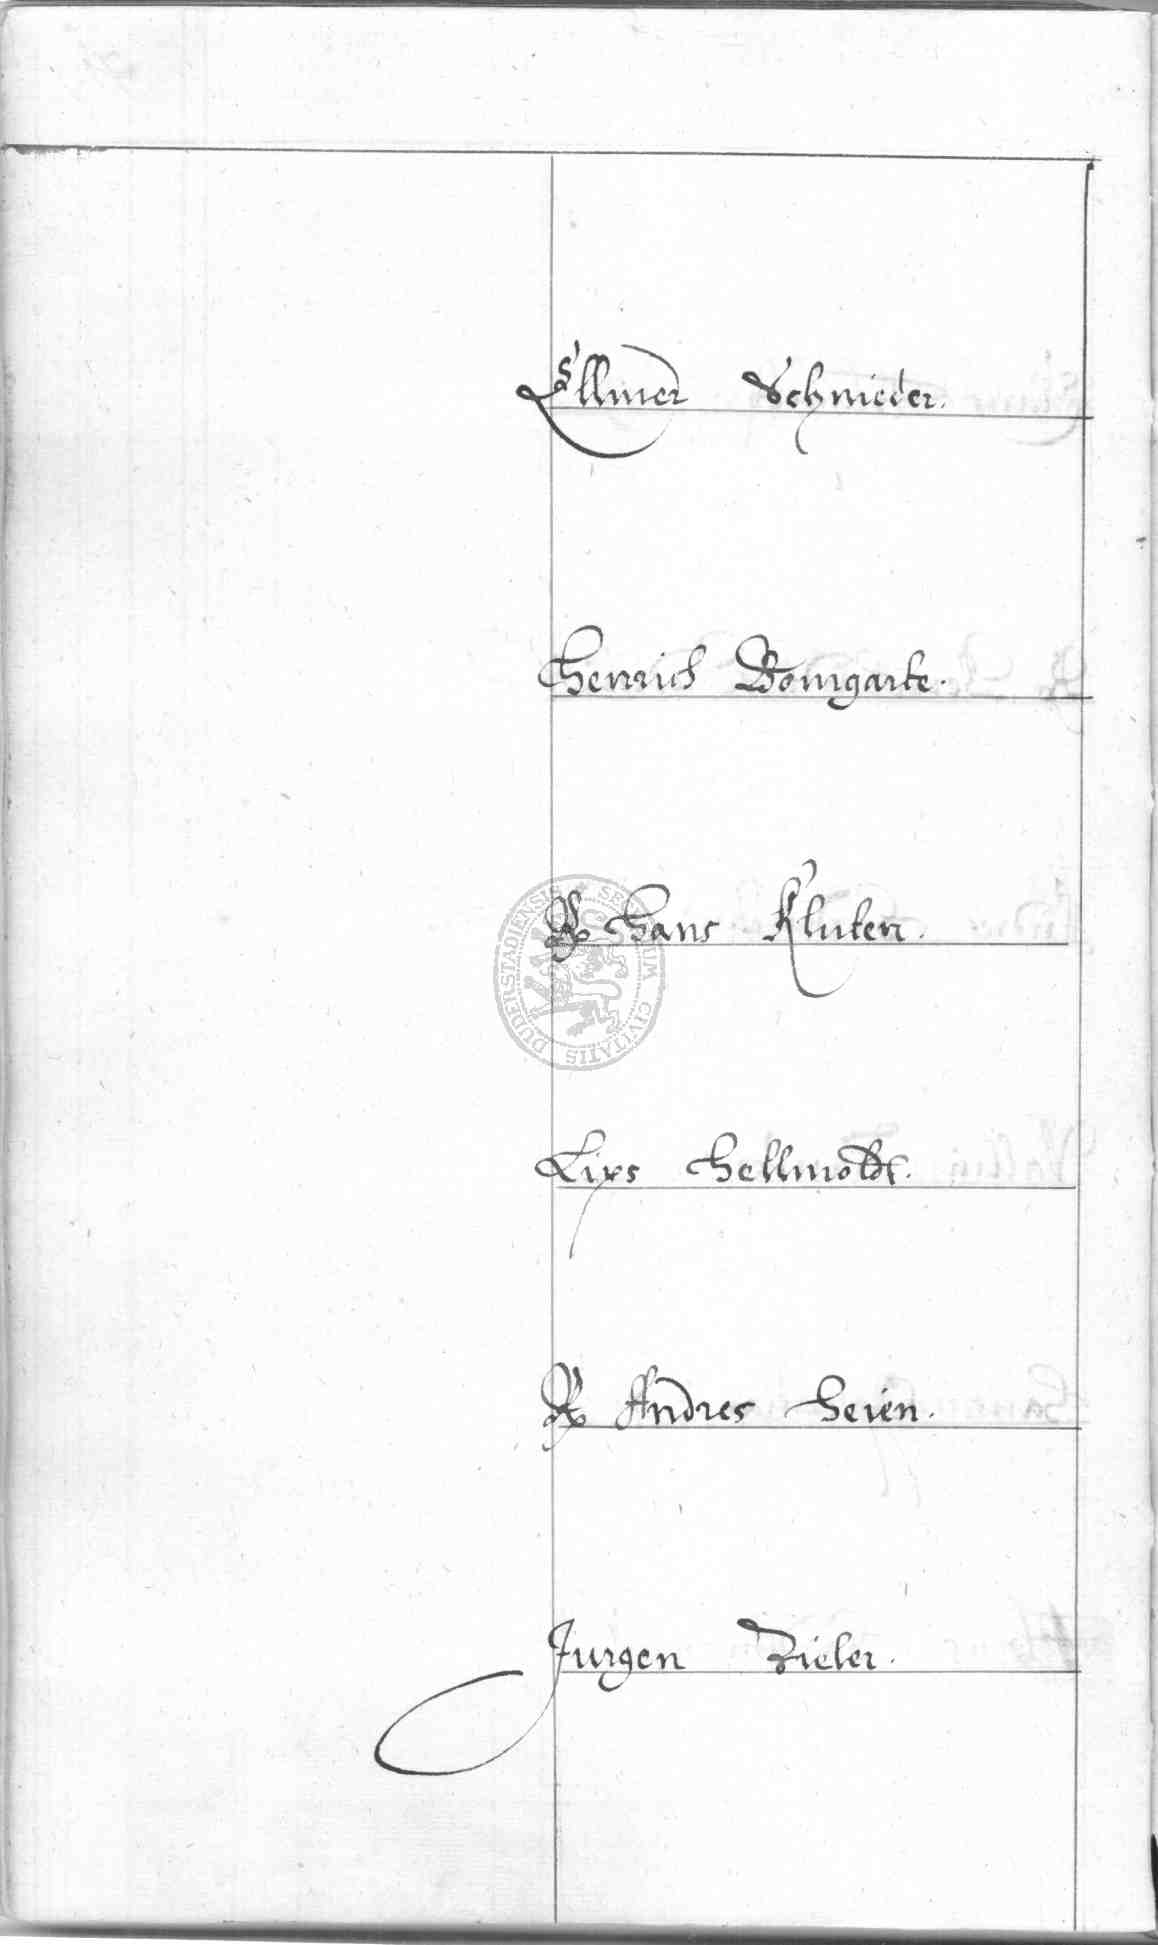 Ellmer Schnieder.
Henrich Bomgarte.
R Hans Kluken.
Lips Hellmoldt.
R Andres Heien.
Jurgen Zieler.
SIGILLUM CIVITATIS DUDERSTADIENSIS